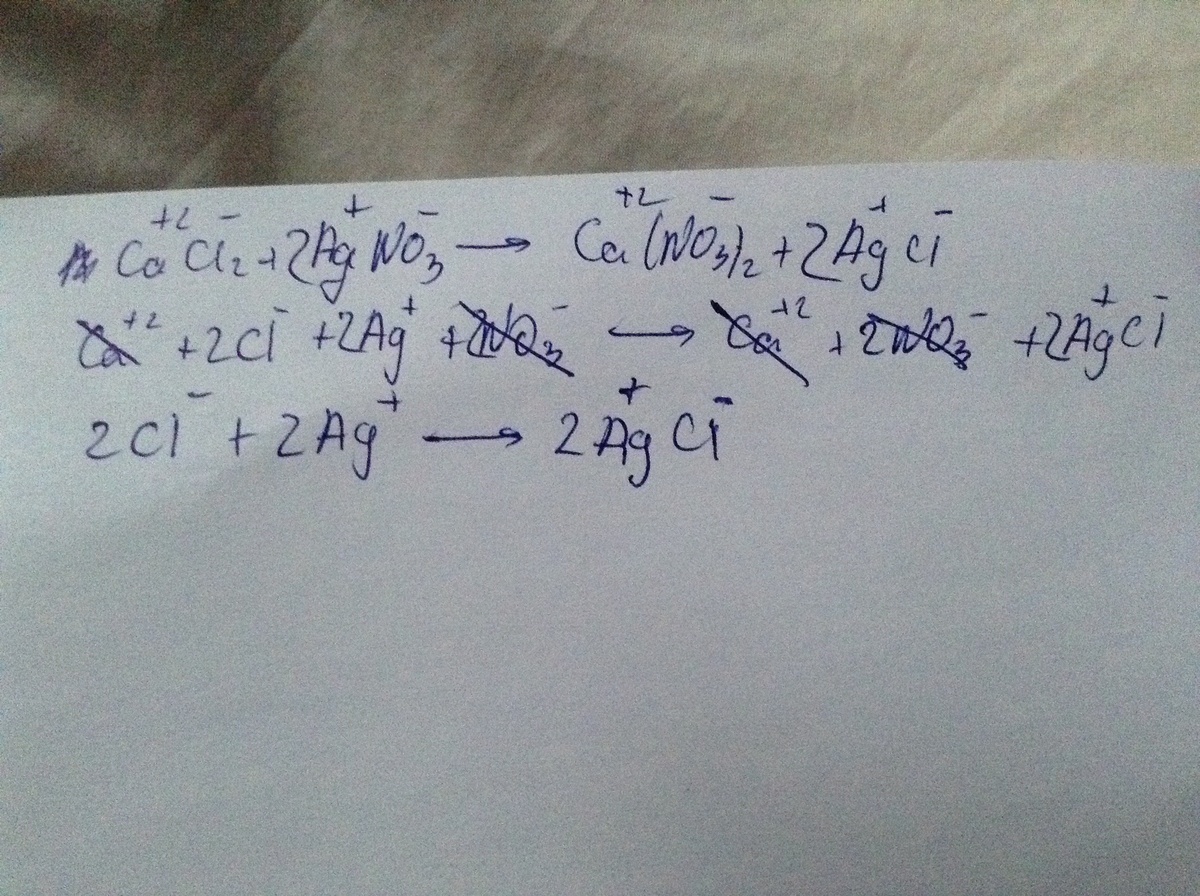 Ca⁺²Cl⁻₂ + 2Ag⁺NO⁻₃ → Ca⁺²(NO⁻₃)₂ + 2Ag⁺Cl⁻
Ca⁺² + 2Cl⁻ + 2Ag⁺ + 2NO₃⁻ → Ca⁺² + 2NO₃⁻ + 2Ag⁺Cl⁻
2Cl⁻ + 2Ag⁺ → 2Ag⁺Cl⁻